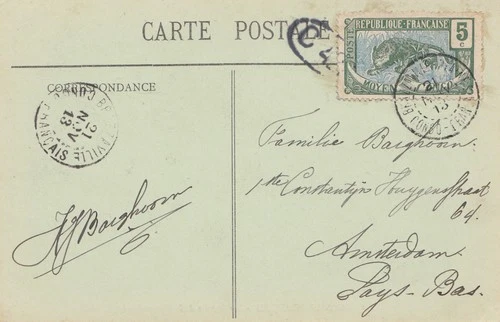 CARTE POSTALE
RÉPUBLIQUE-FRANÇAISE
POSTES
5
c
MOYEN
CORRESPONDANCE
BRAZZAVILLE
21
NOV
13
CONGO-FRANÇAIS
Familie Barghoorn.
1ste Constantijn Huygensstraat
64.
Amsterdam.
Pays-Bas.
Barghoorn